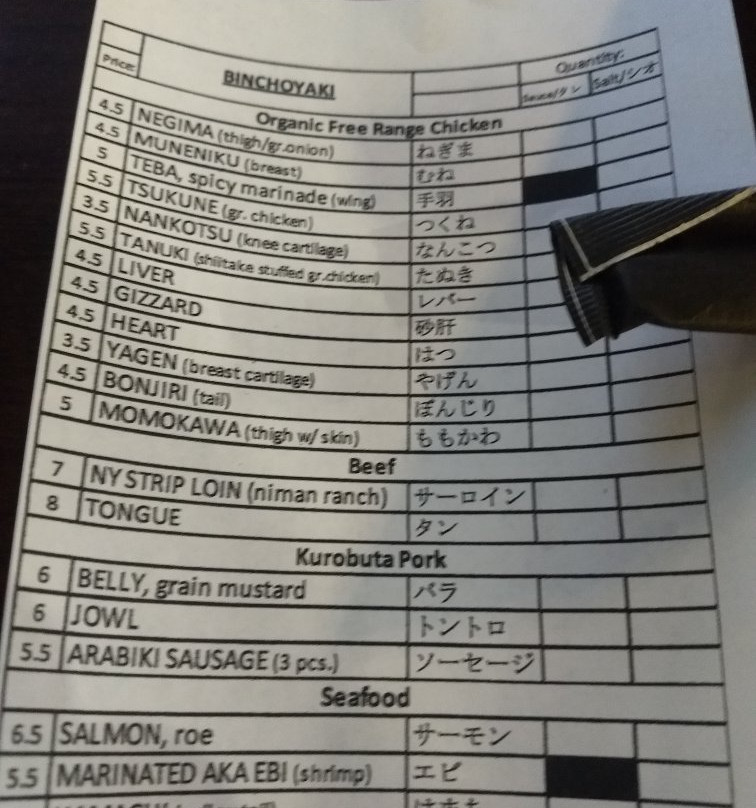 Quantity:
Price: BINCHOYAKI Sauce/タレ Salt/シオ
Organic Free Range Chicken
4.5 NEGIMA (thigh/gr.onion) ねぎま
4.5 MUNENIKU (breast) むね
5 TEBA, spicy marinade (wing) 手羽
5.5 TSUKUNE (gr. chicken) つくね
3.5 NANKOTSU (knee cartilage) なんこつ
5.5 TANUKI (shiitake stuffed gr.chicken) たぬき
4.5 LIVER レバー
4.5 GIZZARD 砂肝
4.5 HEART はつ
3.5 YAGEN (breast cartilage) やげん
4.5 BONJIRI (tail) ぼんじり
5 MOMOKAWA (thigh w/ skin) ももかわ
Beef
7 NY STRIP LOIN (niman ranch) サーロイン
8 TONGUE タン
Kurobuta Pork
6 BELLY, grain mustard バラ
6 JOWL トントロ
5.5 ARABIKI SAUSAGE (3 pcs.) ソーセージ
Seafood
6.5 SALMON, roe サーモン
5.5 MARINATED AKA EBI (shrimp) エビ